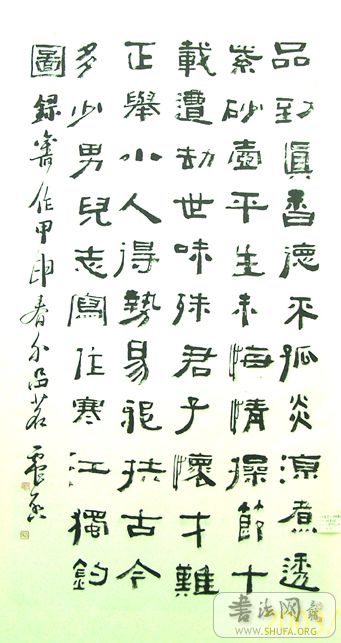 品到眞香德不孤炎涼煮透
紫砂壺平生未悔情操節十
載遭劫世味殊君子懷才難
正舉小人得勢易扶古今
多少男兒志寫作寒江獨釣
圖錄舊作甲申春品茗
書法网
WWW.SHUFA.ORG